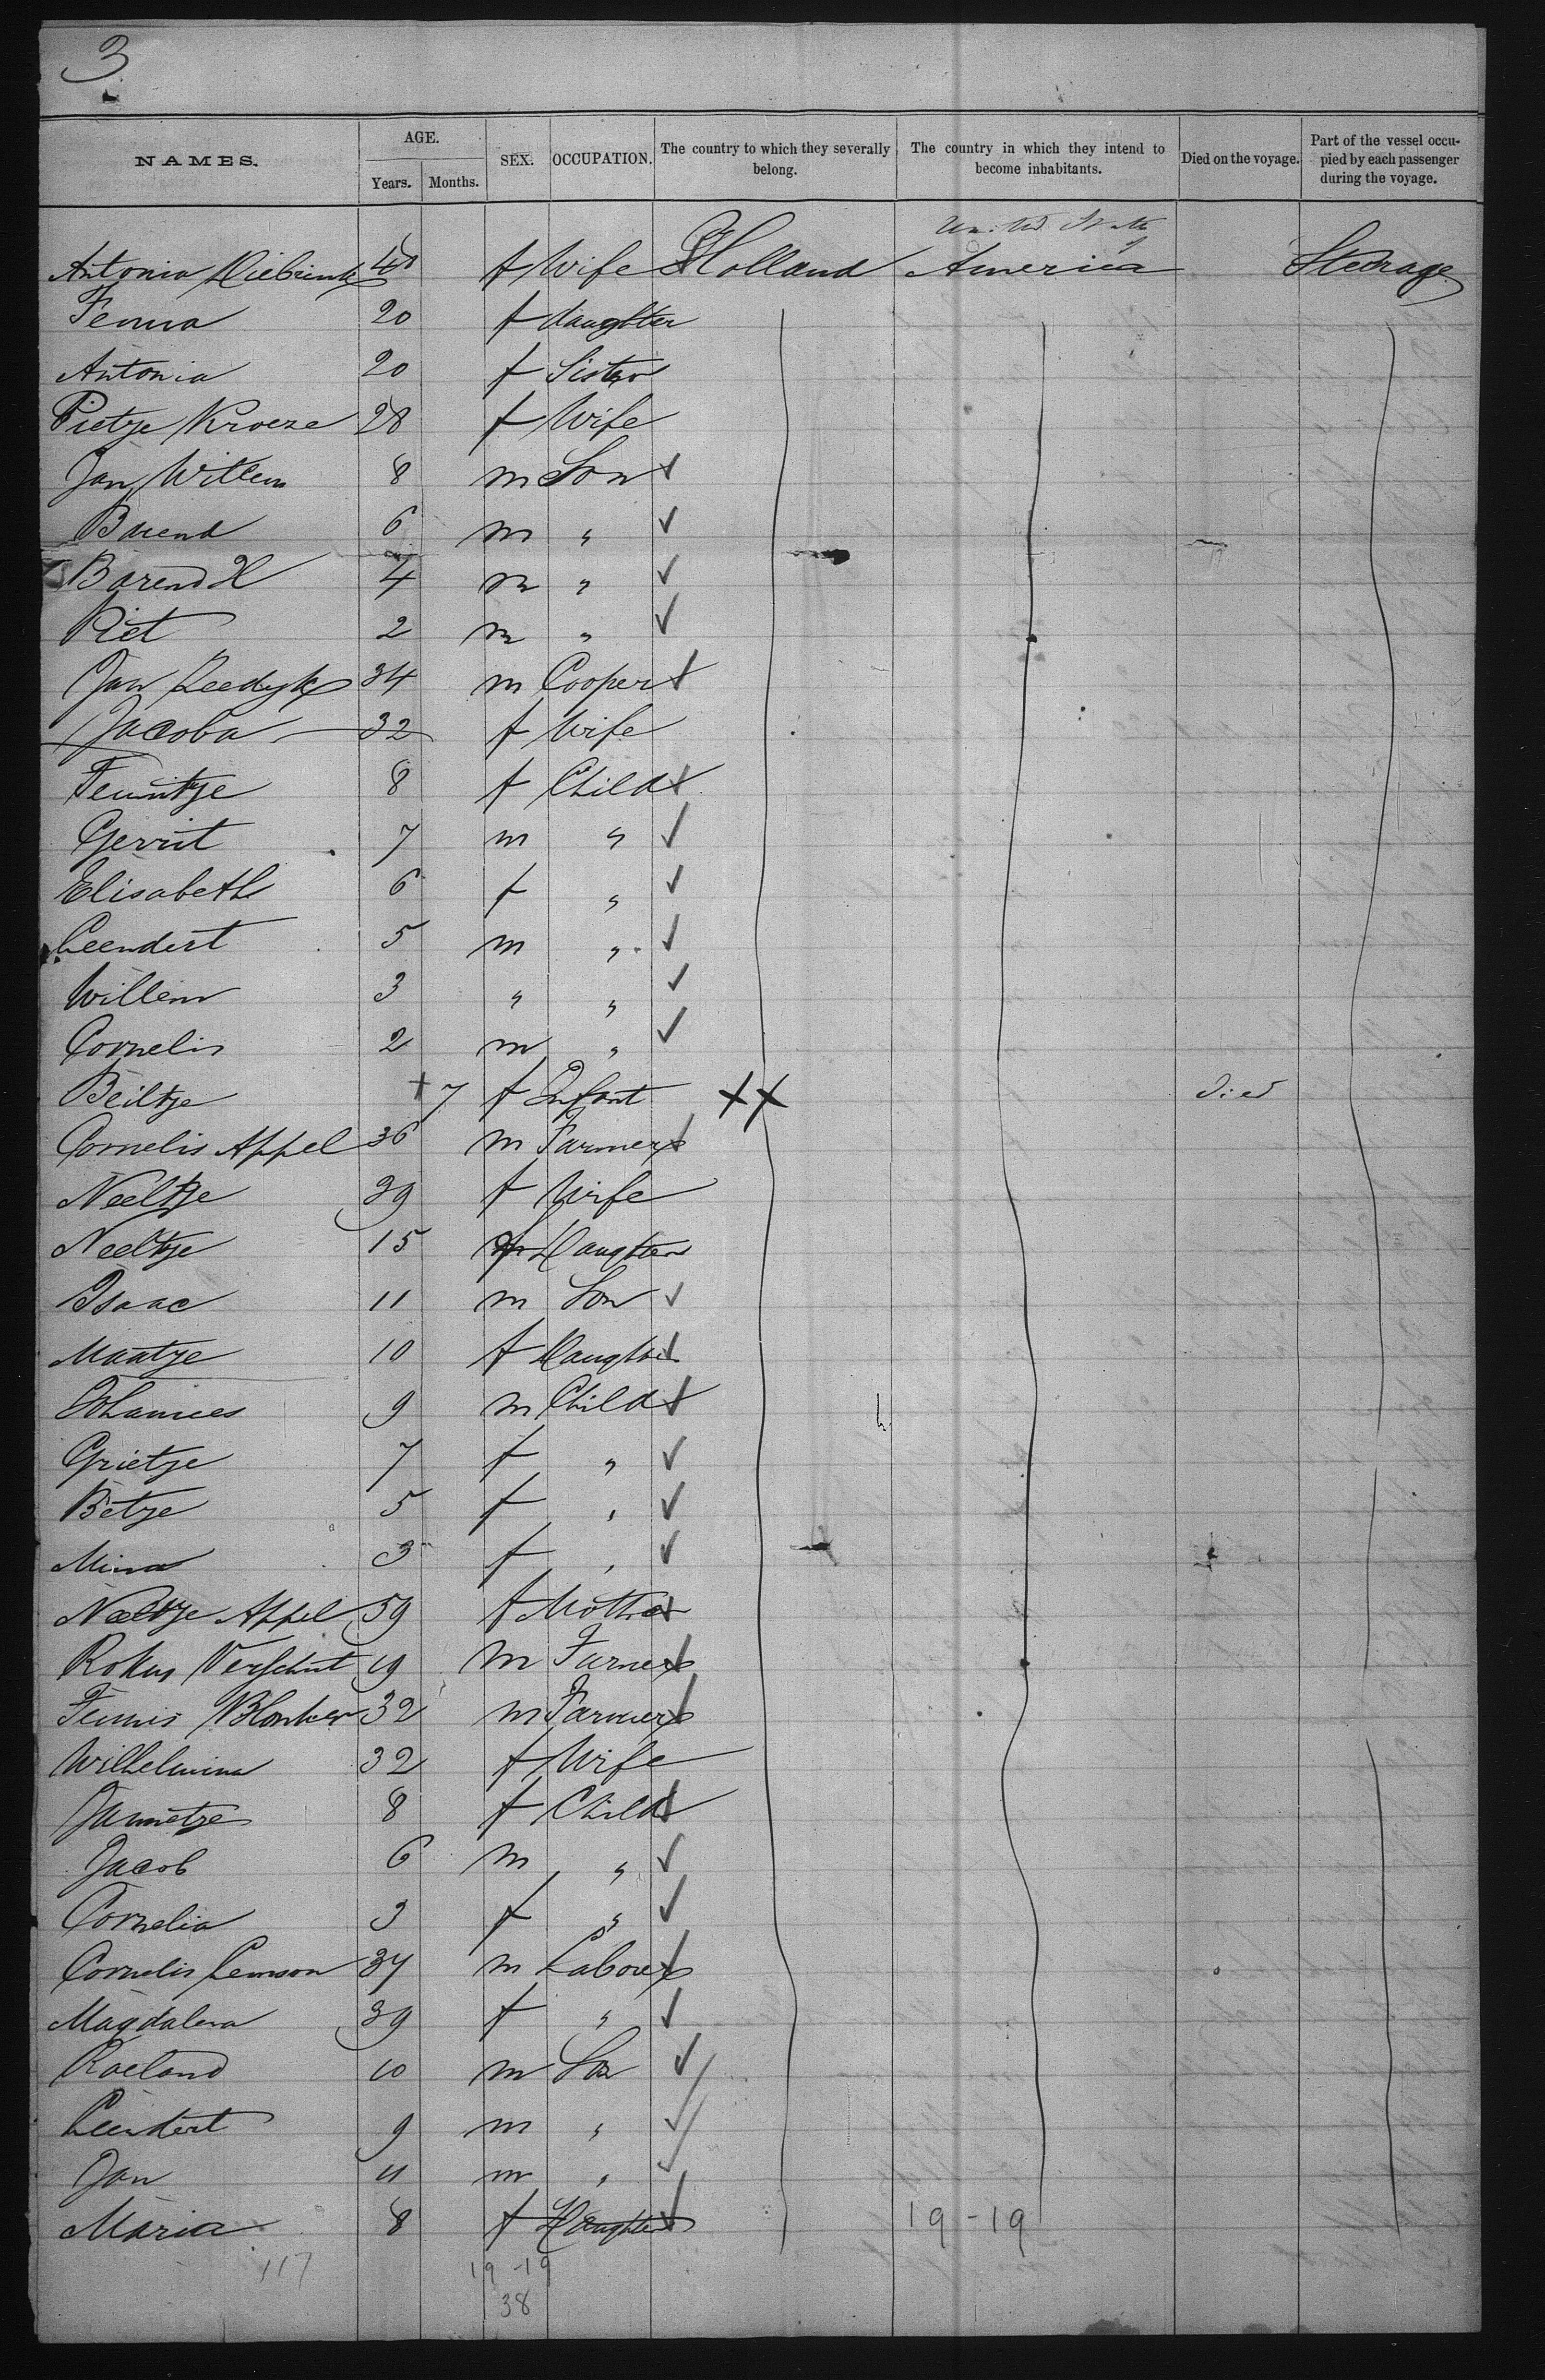 3
NAMES. AGE. Years. Months. SEX. OCCUPATION. The country to which they severally belong. The country in which they intend to become inhabitants. Died on the voyage. Part of the vessel occupied by each passenger during the voyage.
United States of
Antonia f Wife Holland America Steerage
Fenna 20 f daughter
Antonia 20 f Sister
Pietje Kroeze 28 f Wife
Jan Willem 8 m Son
Barend 6 m "
Barend H 4 m "
Piet 2 m "
Jan Leedyk 34 m Cooper
Jacoba 32 f Wife
Teuntje 8 f Child
Gerrit 7 m "
Elisabeth 6 f "
Leendert 5 m "
Willem 3 " "
Cornelis 2 m "
Beiltje + 7 f Infant XX Died
Cornelis Appel 36 m Farmer
Neeltje 39 f Wife
Neeltje 15 f Daughter
Isaac 11 m Son
Maatje 10 f Daughter
Johannes 9 m Child
Grietje 7 f "
Betje 5 f "
Mina 3 f "
Neeltje Appel 59 f Mother
Rokus Verschut 19 m Farmer
Teunis Blonker 32 m Farmer
Wilhelmina 32 f Wife
Jannetje 8 f Child
Jacob 6 m "
Cornelia 3 f "
Cornelis Lemson 37 m Laborer
Magdalena 39 f "
Roeland 10 m Son
Leendert 9 m "
Jan 11 m "
Maria 8 f Daughter 19-19
117 19-19
38